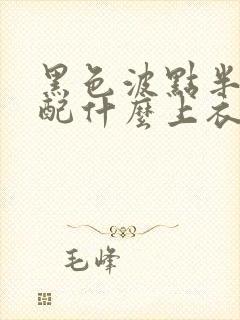 黑色波點半
配什麼上衣
毛峰